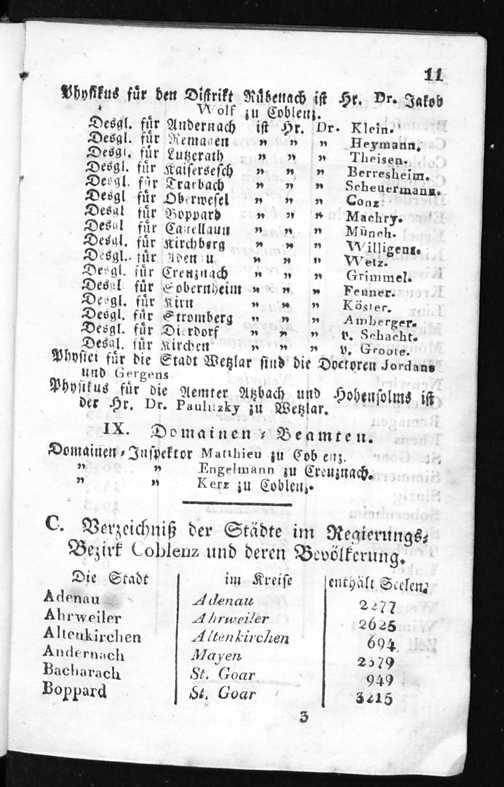 11
Physikus für den Distrikt Rübenach ist Hr. Dr. Jakob
Wolf zu Coblenz.
Desgl. für Andernach ist Hr. Dr. Klein.
Desgl. für Remagen „ „ „ Heymann.
Desgl. für Lutzerath „ „ „ Theisen.
Desgl. für Kaisersesch „ „ „ Berresheim.
Desgl. für Trarbach „ „ „ Scheuermann.
Desgl. für Oberwesel „ „ „ Conz.
Desgl. für Boppard „ „ „ Machry.
Desgl. für Castellaun „ „ „ Münch.
Desgl. für Kirchberg „ „ „ Willigens.
Desgl. für Adenau „ „ „ Wetz.
Desgl. für Creuznach „ „ „ Grimmel.
Desgl. für Sobernheim „ „ „ Fenner.
Desgl. für Kirn „ „ „ Köster.
Desgl. für Stromberg „ „ „ Amberger.
Desgl. für Dierdorf „ „ „ v. Schacht.
Desgl. für Kirchen „ „ „ v. Groote.
Physici für die Stadt Wetzlar sind die Doctoren Jordans
und Gergens
Physikus für die Aemter Atzbach und Hohensolms ist
der Hr. Dr. Paulitzky zu Wetzlar.
IX. Domainen-Beamten.
Domainen-Inspektor Matthieu zu Coblenz.
„ „ Engelmann zu Creuznach.
„ „ Kerz zu Coblenz.
C. Verzeichniß der Städte im Regierungs-
Bezirk Coblenz und deren Bevölkerung.
Die Stadt im Kreise enthält Seelen.
Adenau Adenau 2277
Ahrweiler Ahrweiler 2625
Altenkirchen Altenkirchen 694
Andernach Mayen 2579
Bacharach St. Goar 949
Boppard St. Goar 3215
3